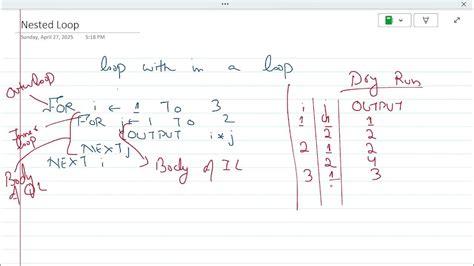 Nested Loop
Sunday, April 27, 2025 5:18 PM
loop with in a loop
Outerloop
FOR i ← 1 TO 3
FOR j ← 1 TO 2
OUTPUT i * j
NEXT j
NEXT i
Inner loop
Body of OL
Body of IL
Dry Run
i j OUTPUT
1 1 1
2 2
2 1 2
2 4
3 1 3